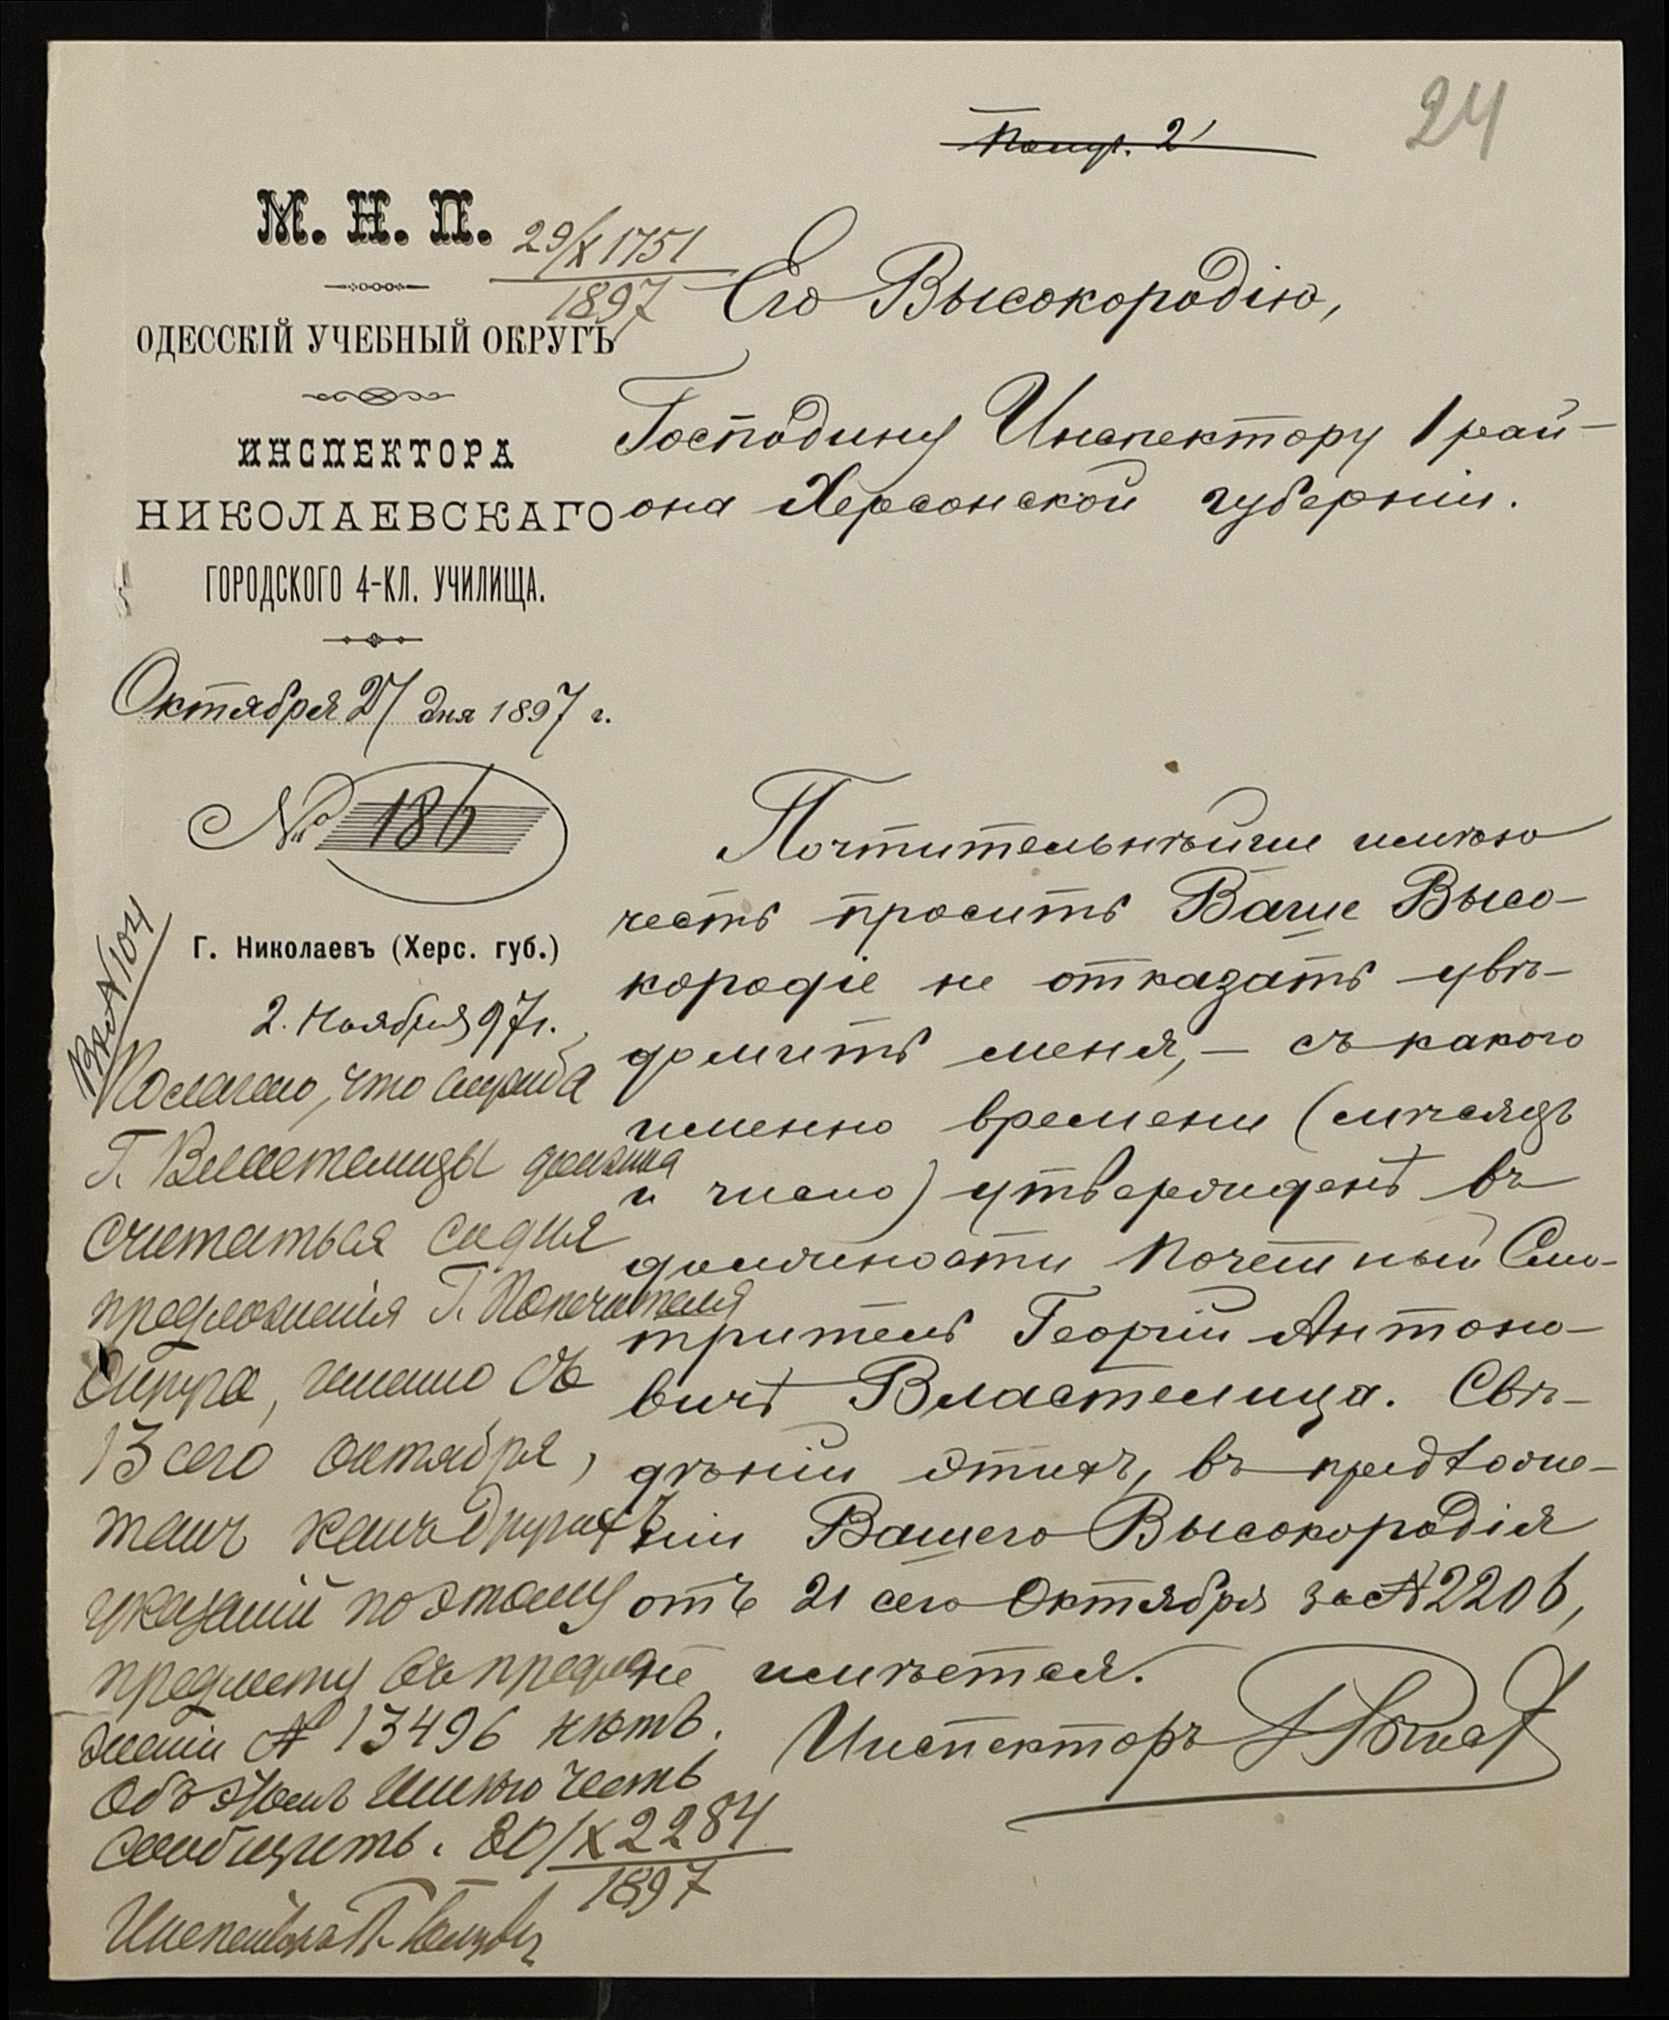 24
М. Н. П.
29/X 1751
1897
ОДЕССКІЙ УЧЕБНЫЙ ОКРУГЪ
ИНСПЕКТОРА
НИКОЛАЕВСКАГО
ГОРОДСКОГО 4-КЛ. УЧИЛИЩА.
Октября 27 дня 1897 г.
№ 186
Г. Николаевъ (Херс. губ.)
Его Высокородію,
Господину Инспектору 1 рай-
она Херсонской губерніи.
Почтительнѣйше имѣю
честь просить Ваше Высо-
кородіе не отказать увѣ-
домить меня, – съ какого
именно времени (мѣсяцъ
и число) утвержденъ въ
должности Почетный Смо-
тритель Георгій Антоно-
вичъ Властелица. Свѣ-
дѣній этихъ, въ предложе-
ніи Вашего Высокородія
отъ 21 сего Октября за № 2206,
не имѣется.
Инспекторъ
Вх. № 104
2. Ноября 97 г.
Полагаю, что служба
Г. Властелицы должна
считаться со дня
предложенія Г. Попечителя
Округа, именно съ
13 сего октября,
такъ какъ другихъ
указаній по этому
предмету въ предло-
женіи № 13496 нѣтъ.
Объ этомъ имѣю честь
сообщить. 30/X 2284
1897
Инспекторъ